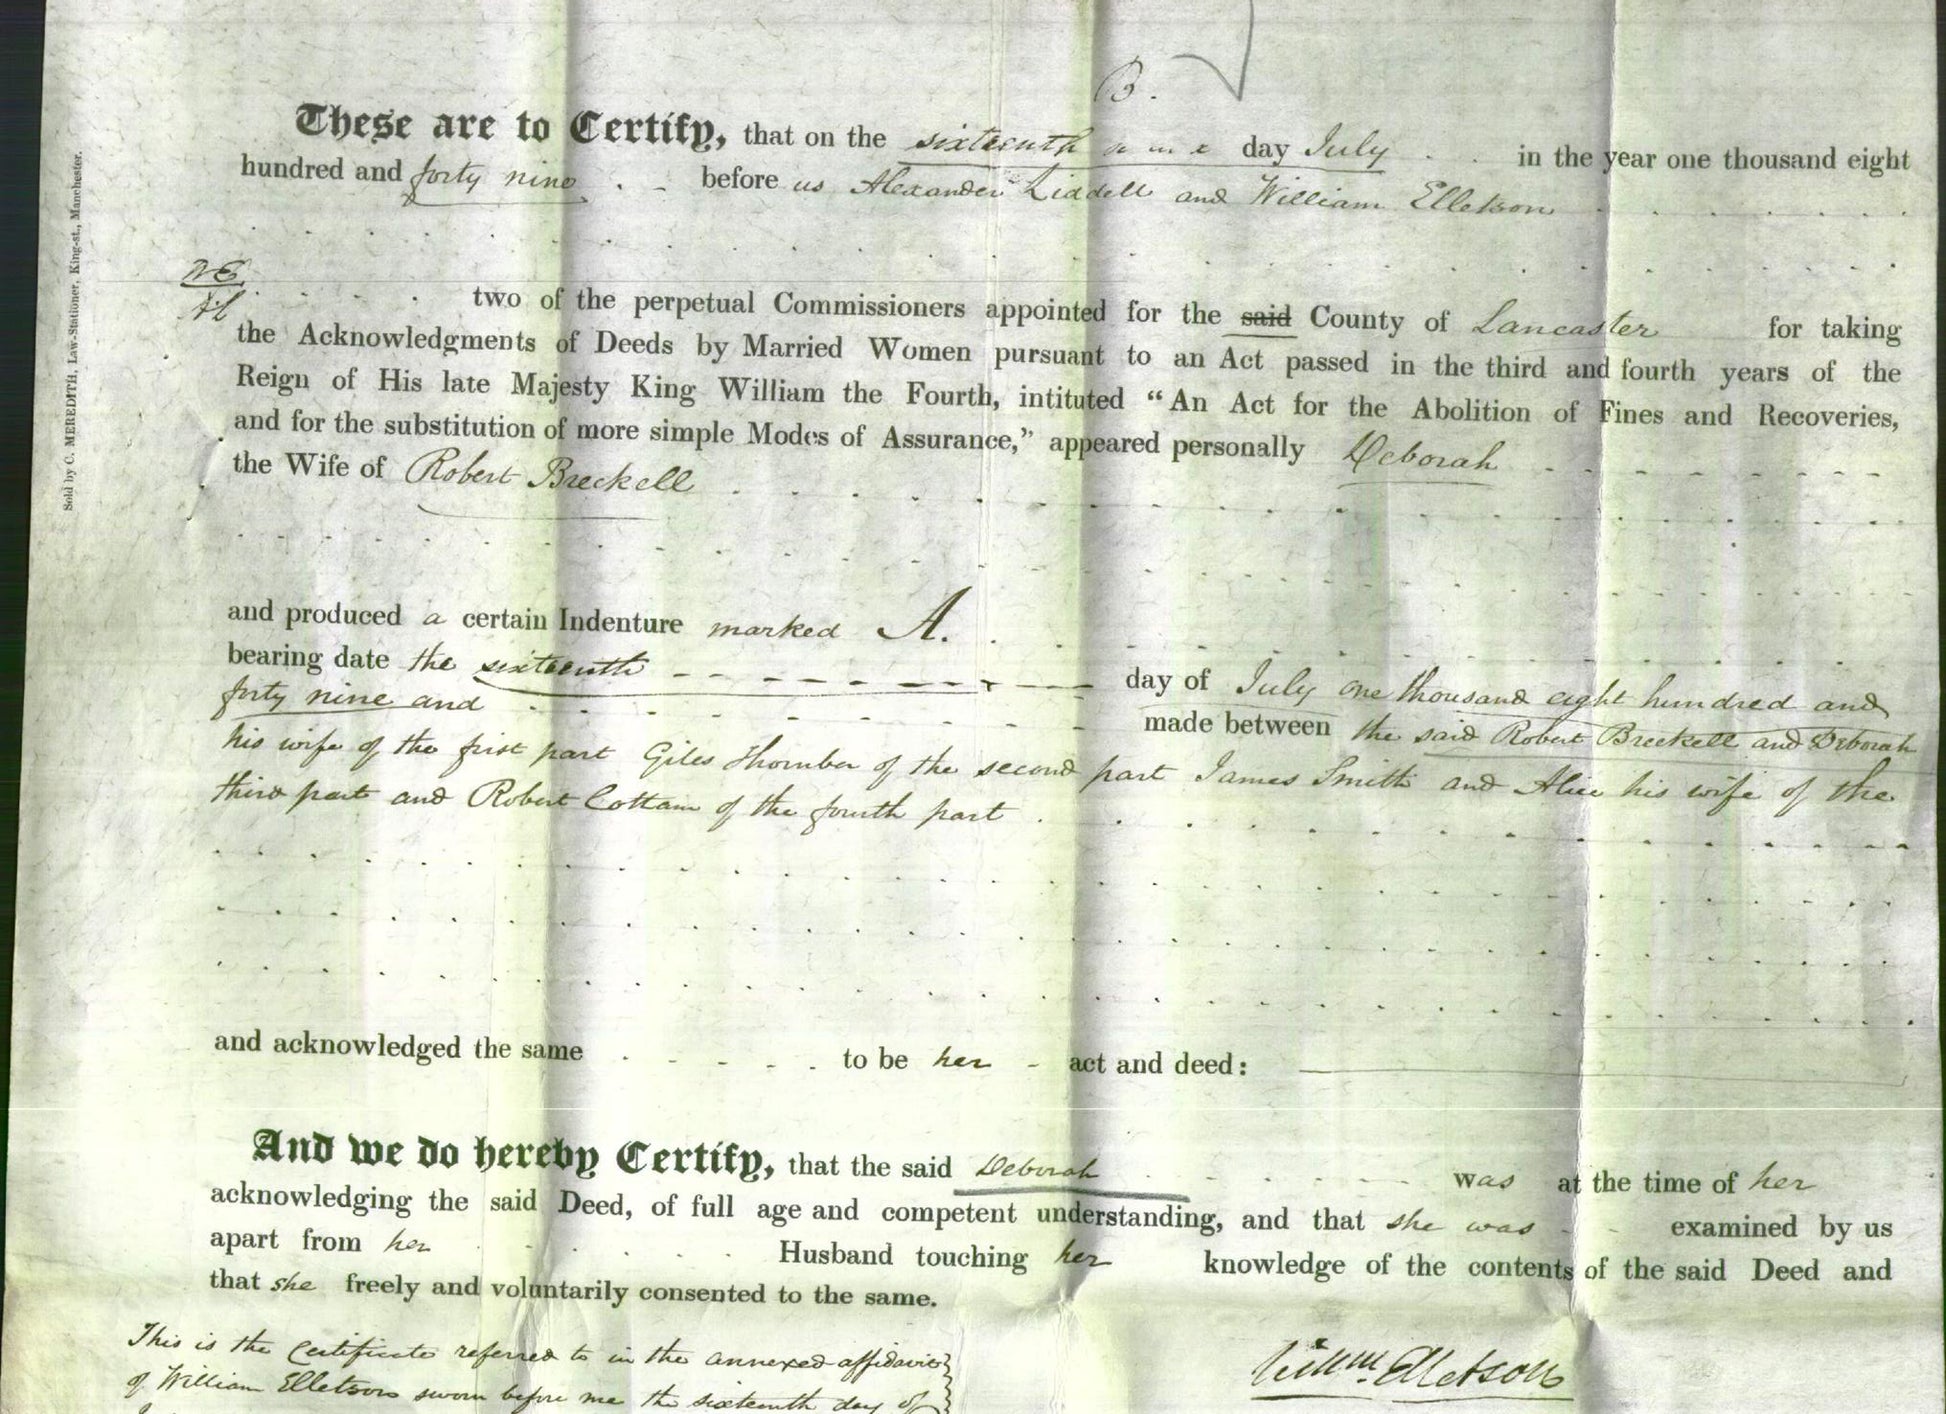 B.
These are to Certify, that on the sixteenth day July in the year one thousand eight
hundred and forty nine before us Alexander Liddell and William Elletson
WE
AL
two of the perpetual Commissioners appointed for the said County of Lancaster for taking
the Acknowledgments of Deeds by Married Women pursuant to an Act passed in the third and fourth years of the
Reign of His late Majesty King William the Fourth, intituted "An Act for the Abolition of Fines and Recoveries,
and for the substitution of more simple Modes of Assurance," appeared personally Deborah
the Wife of Robert Breckell
and produced a certain Indenture marked A.
bearing date the sixteenth day of July one thousand eight hundred and
forty nine and made between the said Robert Breckell and Deborah
his wife of the first part Giles Thornber of the second part James Smith and Alice his wife of the
third part and Robert Cottam of the fourth part
and acknowledged the same to be her act and deed:
And we do hereby Certify, that the said Deborah was at the time of her
acknowledging the said Deed, of full age and competent understanding, and that she was examined by us
apart from her Husband touching her knowledge of the contents of the said Deed and
that she freely and voluntarily consented to the same.
This is the Certificate referred to in the annexed affidavit
of William Elletson sworn before me the sixteenth day of
Willm. Elletson
Sold by C. MEREDITH, Law-Stationer, King-st., Manchester.